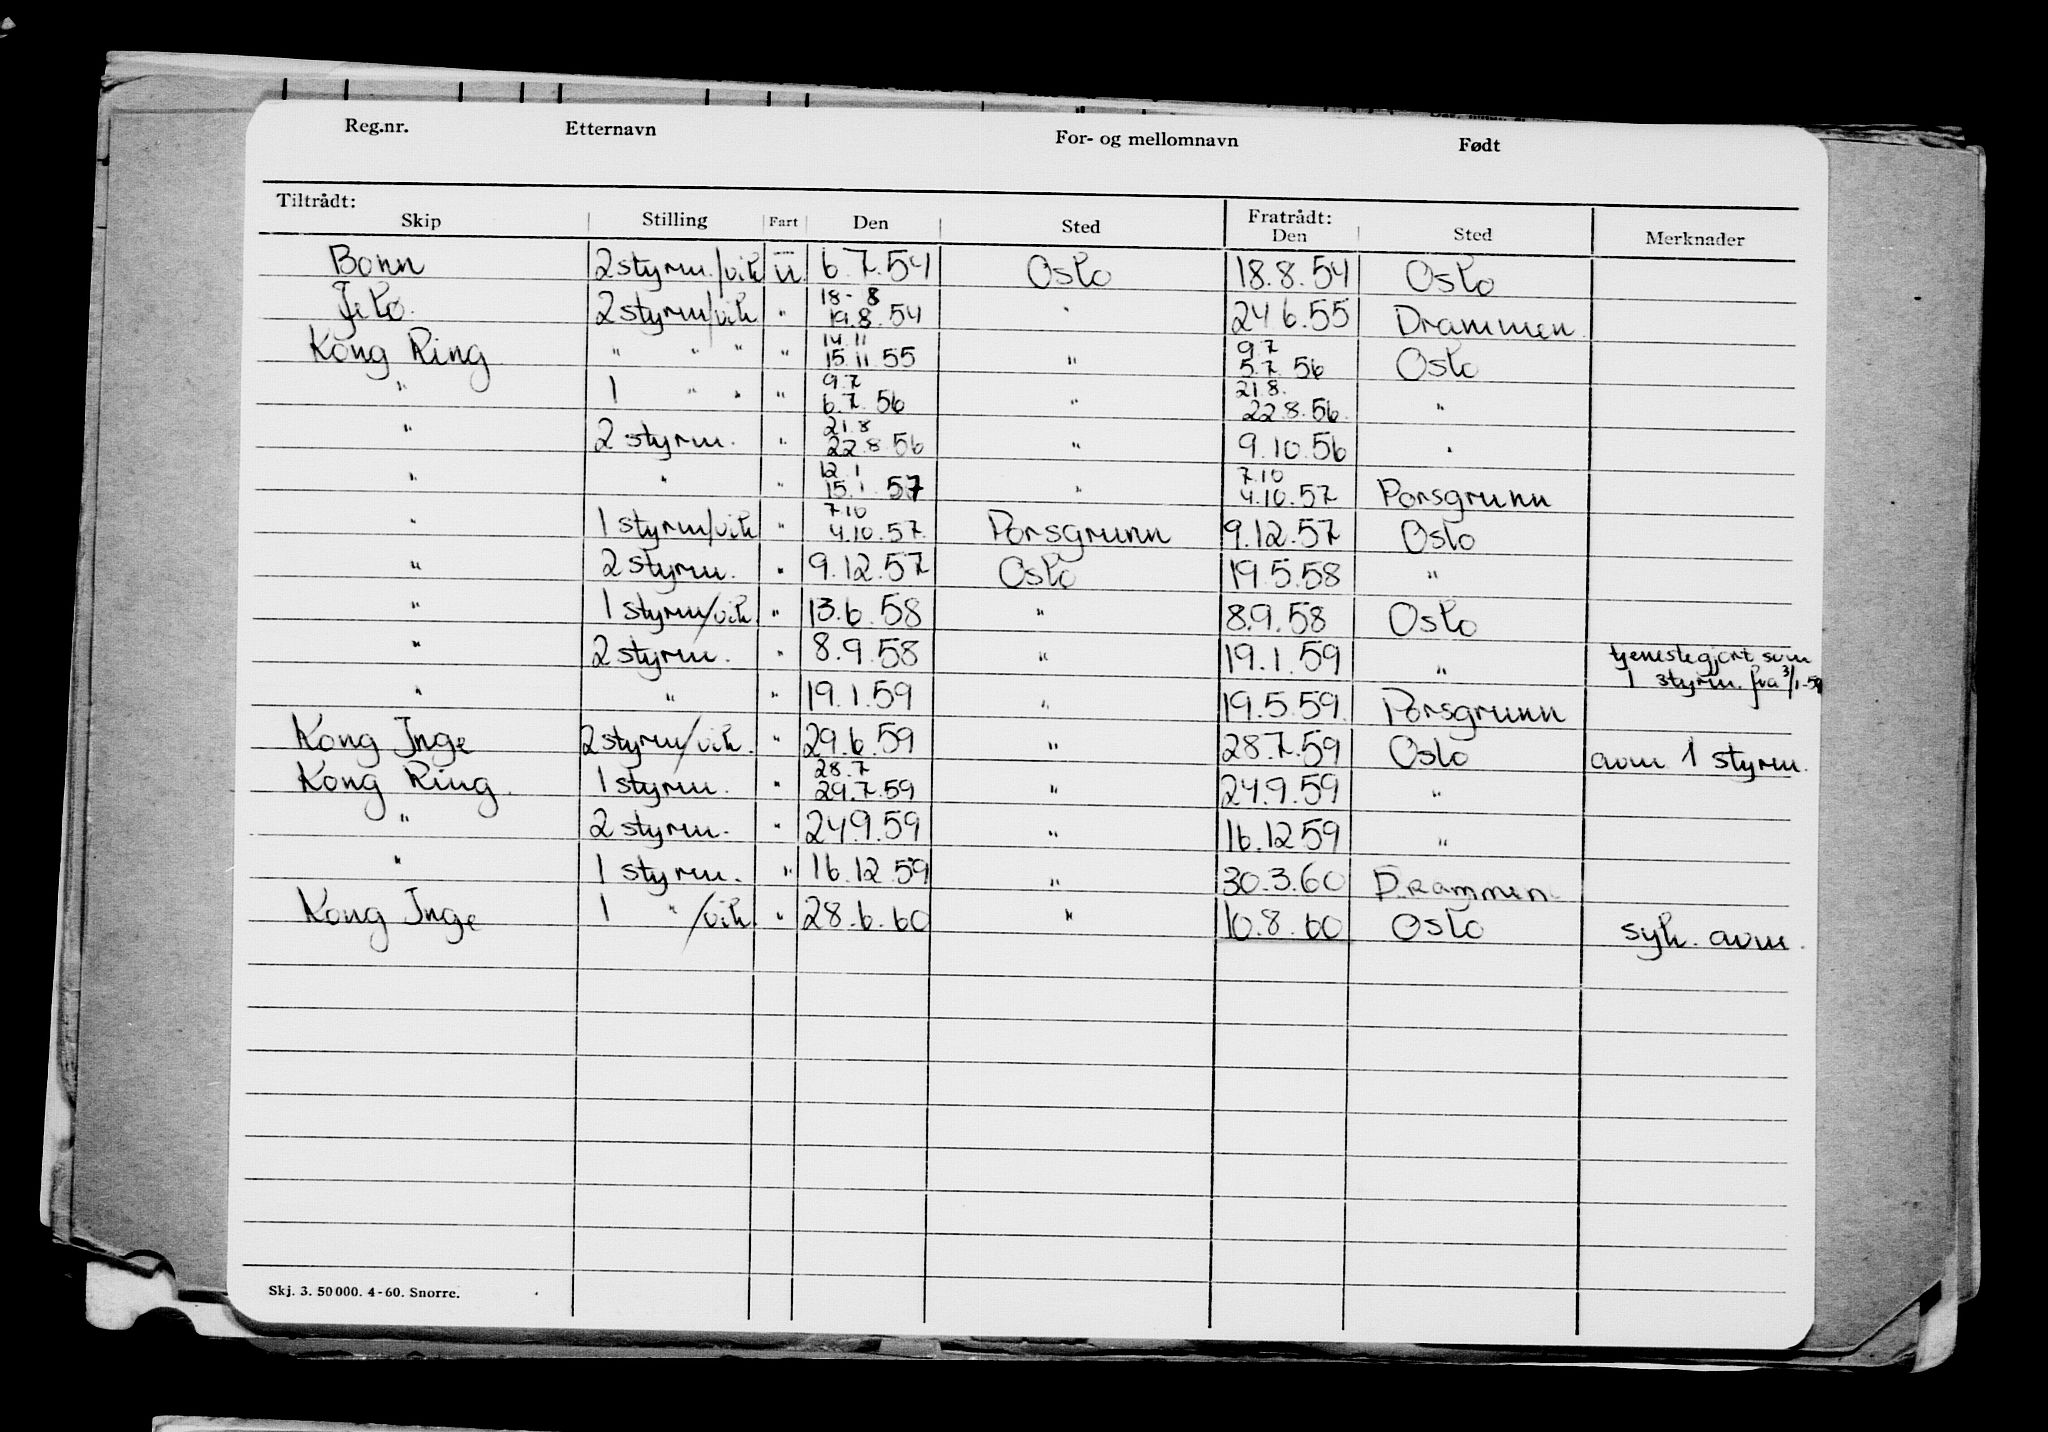 Reg.nr. Etternavn For- og mellomnavn Født
Tiltrådt: Fratrådt:
Skip Stilling Fart Den Sted Den Sted Merknader
Bonn 2 styrm./vik u 6.7.54 Oslo 18.8.54 Oslo
Jelø. 2 styrm/vik " 18-8 19.8.54 " 24.6.55 Drammen
Kong Ring " " " " 14.11 15.11.55 " 9.7 5.7.56 Oslo
" 1 " " " 9.7 6.7.56 " 21.8. 22.8.56. "
" 2 styrm. " 21.8 22.8.56 " 9.10.56 "
" " " 12.1 15.1.57 " 7.10 4.10.57 Porsgrunn
" 1 styrm/vik " 7.10 4.10.57. Porsgrunn 9.12.57 Oslo
" 2 styrm. " 9.12.57 Oslo 19.5.58 "
" 1 styrm/vik. " 13.6.58 " 8.9.58 Oslo
" 2 styrm. " 8.9.58 " 19.1.59 " tjenestegjort som
1 styrm. fra 3/1-59
" " " 19.1.59 " 19.5.59. Porsgrunn
Kong Inge 2 styrm/vik. " 29.6.59 " 28.7.59 Oslo avm 1 styrm.
Kong Ring. 1 styrm. " 28.7 29.7.59 " 24.9.59 "
" 2 styrm. " 24.9.59 " 16.12.59 "
" 1 styrm. " 16.12.59 " 30.3.60 Drammen.
Kong Inge 1 " /vik. " 28.6.60 " 10.8.60 Oslo syk. avm.
Skj. 3. 50 000. 4-60. Snorre.